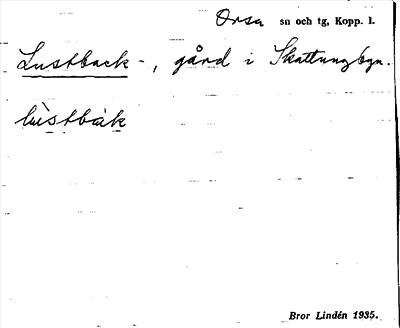 Orsa sn och tg, Kopp. l.
Lustback-, gård i Skattungbyn.
lùstbàk
Bror Lindén 1935.